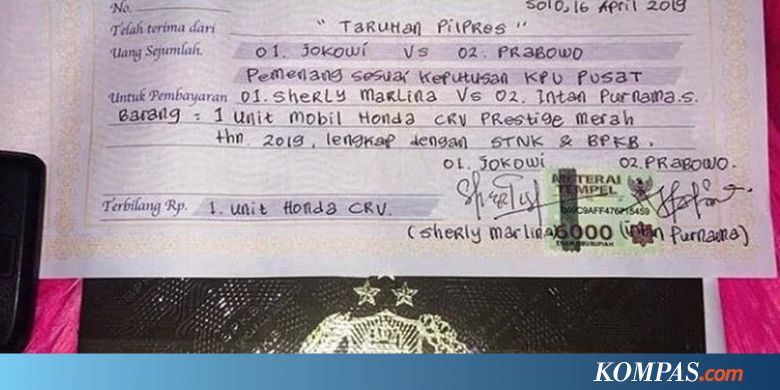 No. Solo, 16 April 2019
Telah terima dari "TARUHAN PILPRES"
Uang Sejumlah. 01. JOKOWI VS 02. PRABOWO
Pemenang sesuai Keputusan KPU PUSAT
Untuk Pembayaran 01. Sherly Marlina VS 02. Intan Purnama.S.
Barang = 1 Unit Mobil Honda CRV Prestige merah
thn. 2019, lengkap dengan STNK & BPKB.
01. JOKOWI 02. PRABOWO.
METERAI
TEMPEL
Terbilang Rp. 1. Unit Honda CRV.
6000
ENAM RIBU RUPIAH
(Sherly Marlina) (Intan Purnama)
KOMPAS.com